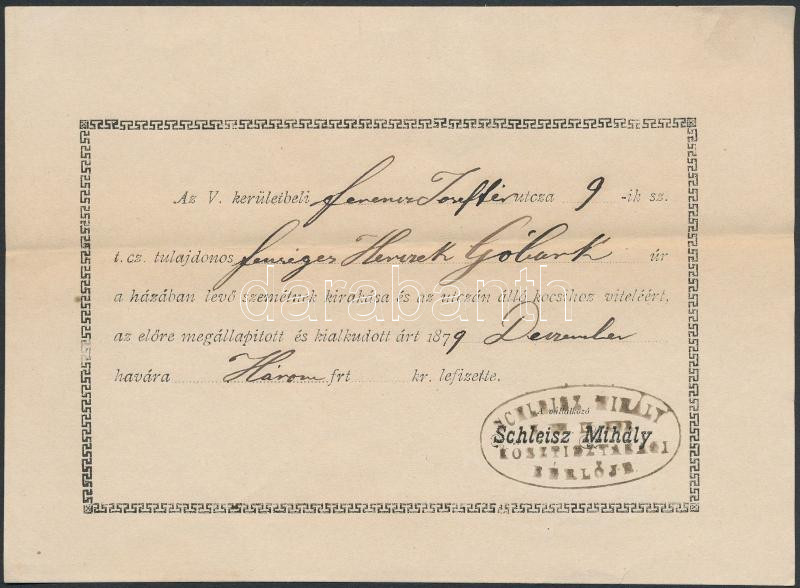 Az V. kerületbeli Ferencz Josef tér utcza 9 -ik sz.
t. cz. tulajdonos fenséges Herczek Góbark úr
a házában levő szemétnek kirakása és az utczán álló kocsihoz viteléért,
az előre megállapitott és kialkudott árt 1879 Deczember
havára Három frt kr. lefizette.
A vállalkozó
Schleisz Mihály
SCHLEISZ MIHÁLY
KÖZTISZTASÁGI
BÉRLŐJE
darabanth